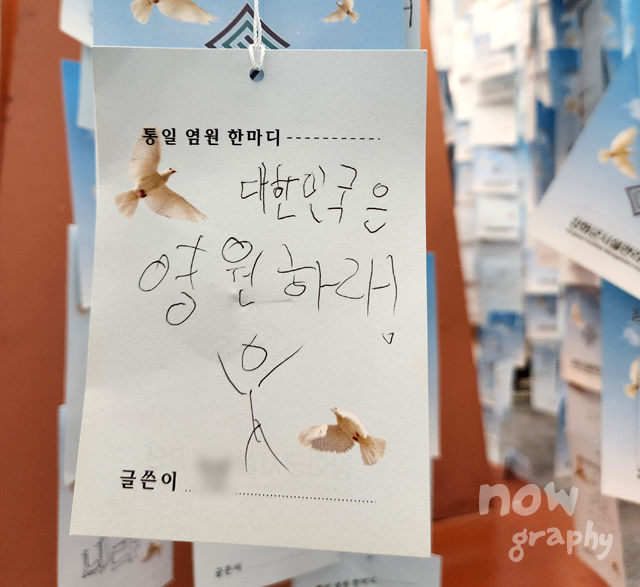 통일 염원 한마디
대한민국은
영원하라!
글쓴이
now
graphy
글쓴이